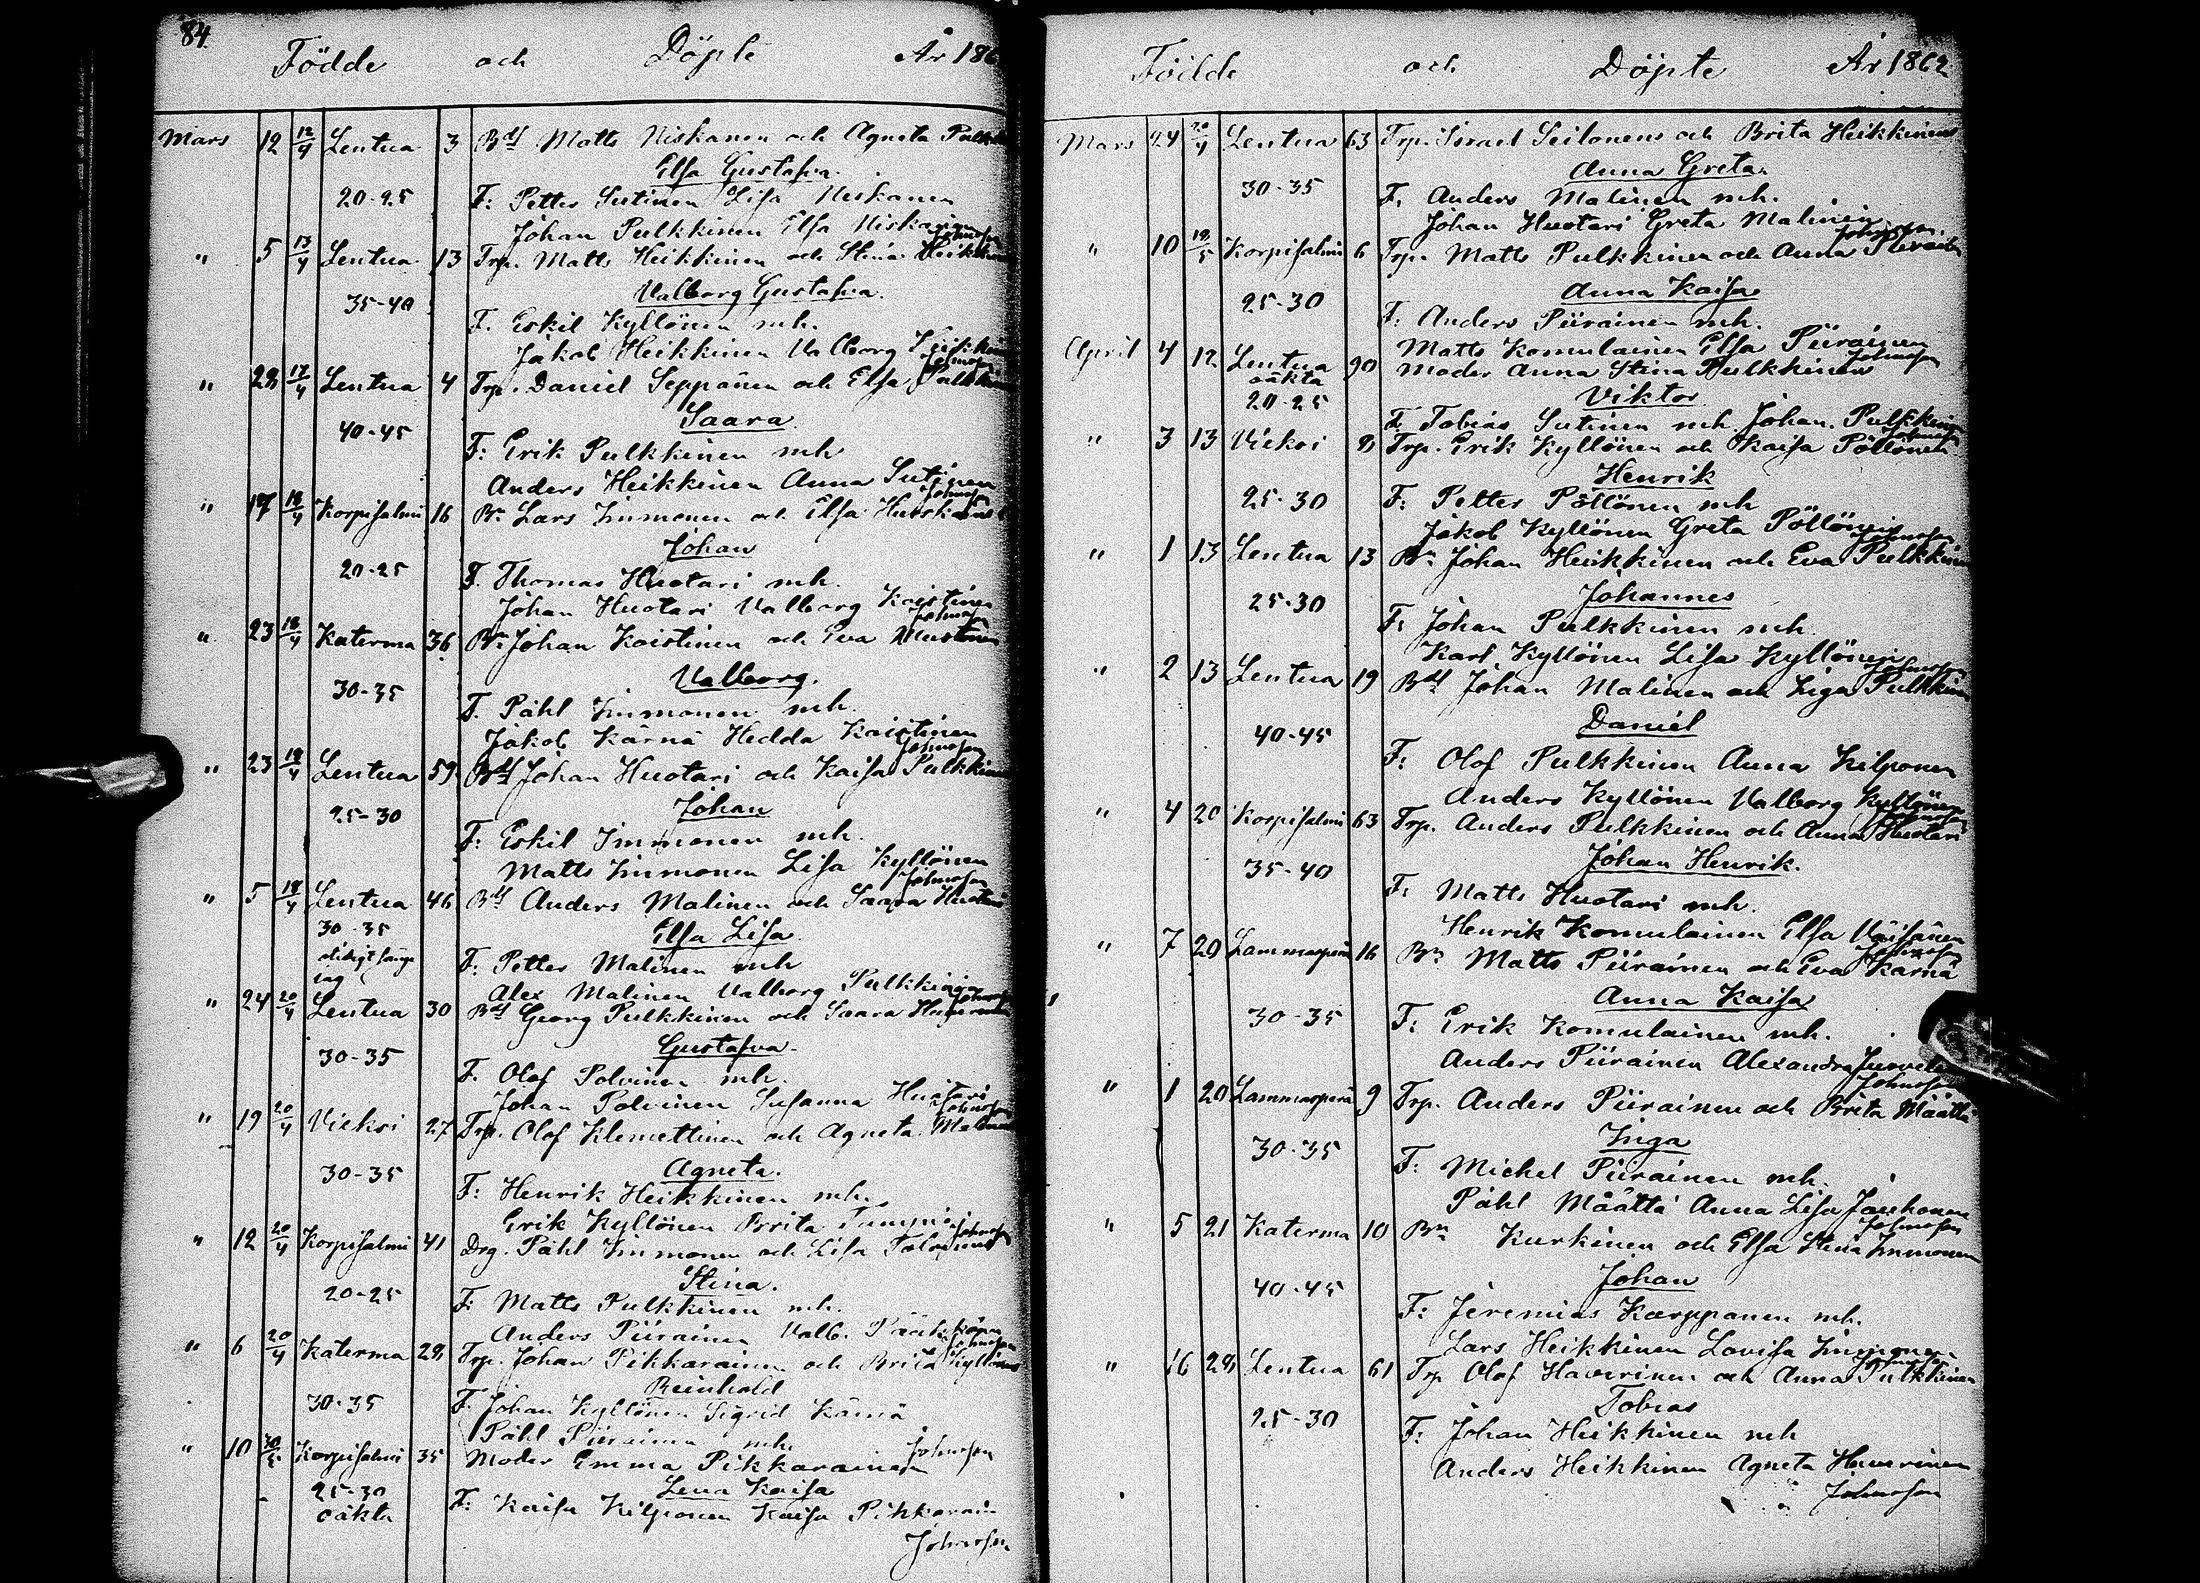 84.
Födde och Döpte År 186
Mars 12 12/4 Lentua 3 Bd Matts Niskanen och Agneta
Elsa Gustafva.
20-25 F: Petter Sutinen Lisa Niskanen
Johan Pulkkinen Elsa Niskanen
Johnsson
" 5 13/4 Lentua 13 Trp. Matts Heikkinen och Stina
Valborg Gustafva.
35-40 F. Eskil Kyllönen mh.
Jakob Heikkinen Valborg
Johnsson
" 28 17/4 Lentua 4 Trp. Daniel Seppänen och Elsa
Saara
40-45 F: Erik Pulkkinen mh
Anders Heikkinen Anna Sutinen
Johnsson
" 17 18/4 Korpisalmi 16 Bn Lars Immonen och Elsa
Johan
20-25 F. Thomas Huotari mh.
Johan Huotari Valborg Koistinen
Johnsson
" 23 18/4 Katerma 36 Bn Johan Koistinen och Eva
Valborg.
30-35 F. Påhl Immonen mh.
Jakob Kärnä Hedda Koistinen
Johnsson
" 23 18/4 Lentua 59 Bd Johan Huotari och Kaisa
Johan
25-30 F: Eskil Immonen mh.
Matts Immonen Lisa Kyllönen
Johnsson
" 5 18/4 Lentua 46 Bd Anders Malinen och Saara
Elsa Lisa
30-35 F: Petter Malinen mh
Alex Malinen Valborg Pulkkinen
Johnsson
" 24 20/4 Lentua 30 Bd Georg Pulkkinen och Saara
Gustafva
30-35 F. Olof Polvinen mh.
Johan Polvinen Susanna Huotari
Johnsson
" 19 20/4 Vieksi 27 Trp. Olof Klemettinen och Agneta
Agneta.
30-35 F: Henrik Heikkinen mh.
Erik Kyllönen Brita
Johnsson
" 12 20/4 Korpisalmi 41 Drg. Påhl Immonen och Lisa
Stina.
20-25 F: Matts Pulkkinen mh.
Anders Piirainen Valb.
Johnsson
" 6 20/4 Katerma 28 Trp. Johan Pikkarainen och Brita
Reinhold
30-35 F. Johan Kyllönen Sigrid Kärnä
Påhl Piirainen mh.
Johnsson
" 10 Korpisalmi 35 Moder Emma Pikkarainen
Lena Kaisa
25-30 F: Kaisa Kilponen Kaisa
oäkta
Johnsson
Födde och Döpte År 1862
Mars 24 20/4 Lentua 63 Trp. Israel Seilonen och Brita Heikkinens
Anna Greta.
30-35 F. Anders Malinen mh.
Johan Huotari Greta Malinen
Johnsson
" 10 Korpisalmi 6 Trp. Matts Pulkkinen och Anna
Anna Kaisa
25-30 F: Anders Piirainen mh.
Matts Komulainen Elsa Piirainen
Johnsson
April 4 12 Lentua 90 Moder Anna Stina Pulkkinen
oäkta
Viktor
20-25 F. Tobias Sutinen mh. Johan. Pulkkinen
Johnsson
" 3 13 Vieksi 8 Trp. Erik Kyllönen och Kaisa Pöllönen
Henrik
25-30 F: Petter Pöllönen mh
Jakob Kyllönen Greta Pöllönen
Johnsson
" 1 13 Lentua 13 Bn Johan Heikkinen och Eva Pulkkinen
Johannes
25-30 F: Johan Pulkkinen mh
Karl Kyllönen Lisa Kyllönen
Johnsson
" 2 13 Lentua 19 Bd Johan Malinen och Liga Pulkkinen
Daniel
40-45 F: Olof Pulkkinen Anna Kilponen
Anders Kyllönen Valborg Kyllönen
Johnsson
" 4 20 Korpisalmi 63 Trp. Anders Pulkkinen och Anna Huotari
Johan Henrik.
35-40 F: Matts Huotari mh.
Henrik Komulainen Elsa Väisänen
Johnsson
" 7 20 Lammasperä 16 Bn Matts Piirainen och Eva Kärnä
Anna Kaisa
30-35 F: Erik Komulainen mh.
Anders Piirainen Alexandra
Johnsson
" 1 20 Lammasperä 9 Trp. Anders Piirainen och Brita Määttä
Inga
30-35 F: Michel Piirainen mh.
Påhl Määttä Anna Lisa Jauhonen
Johnsson
" 5 21 Katerma 10 Bn Kurkinen och Elsa Stina Immonen
Johan
40-45 F: Jeremias Karppanen mh.
Lars Heikkinen Lovisa Immonen
Johnsson
" 16 28 Lentua 61 Trp Olof Haverinen och Anna Pulkkinen
Tobias
25-30 F: Johan Heikkinen mh
Anders Heikkinen Agneta Haverinen
Johnsson